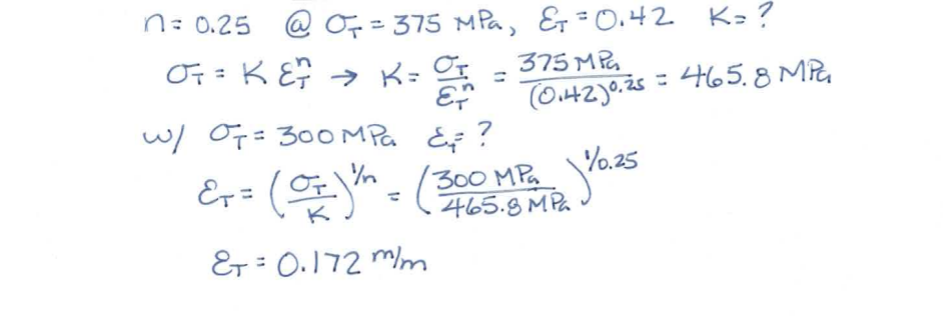 n = 0.25 @ σT = 375 MPa, εT = 0.42 K = ?
σT = K εT^n → K = σT / εT^n = 375 MPa / (0.42)^0.25 = 465.8 MPa
w/ σT = 300 MPa εT = ?
εT = (σT / K)^1/n = (300 MPa / 465.8 MPa)^1/0.25
εT = 0.172 m/m